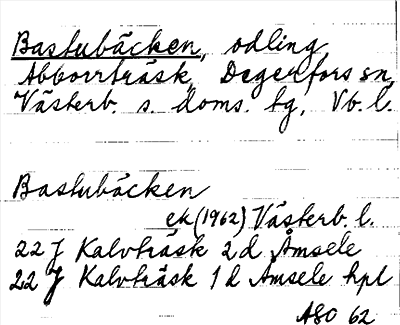 Bastubäcken, odling,
Abborrträsk, Degerfors sn,
Västerb. s. doms. tg, Vb. l.
Bastubäcken
ek (1962) Västerb. l.
22 J Kalvträsk 2 d Åmsele
22 J Kalvträsk 1 d Åmsele hpl
ASO 62